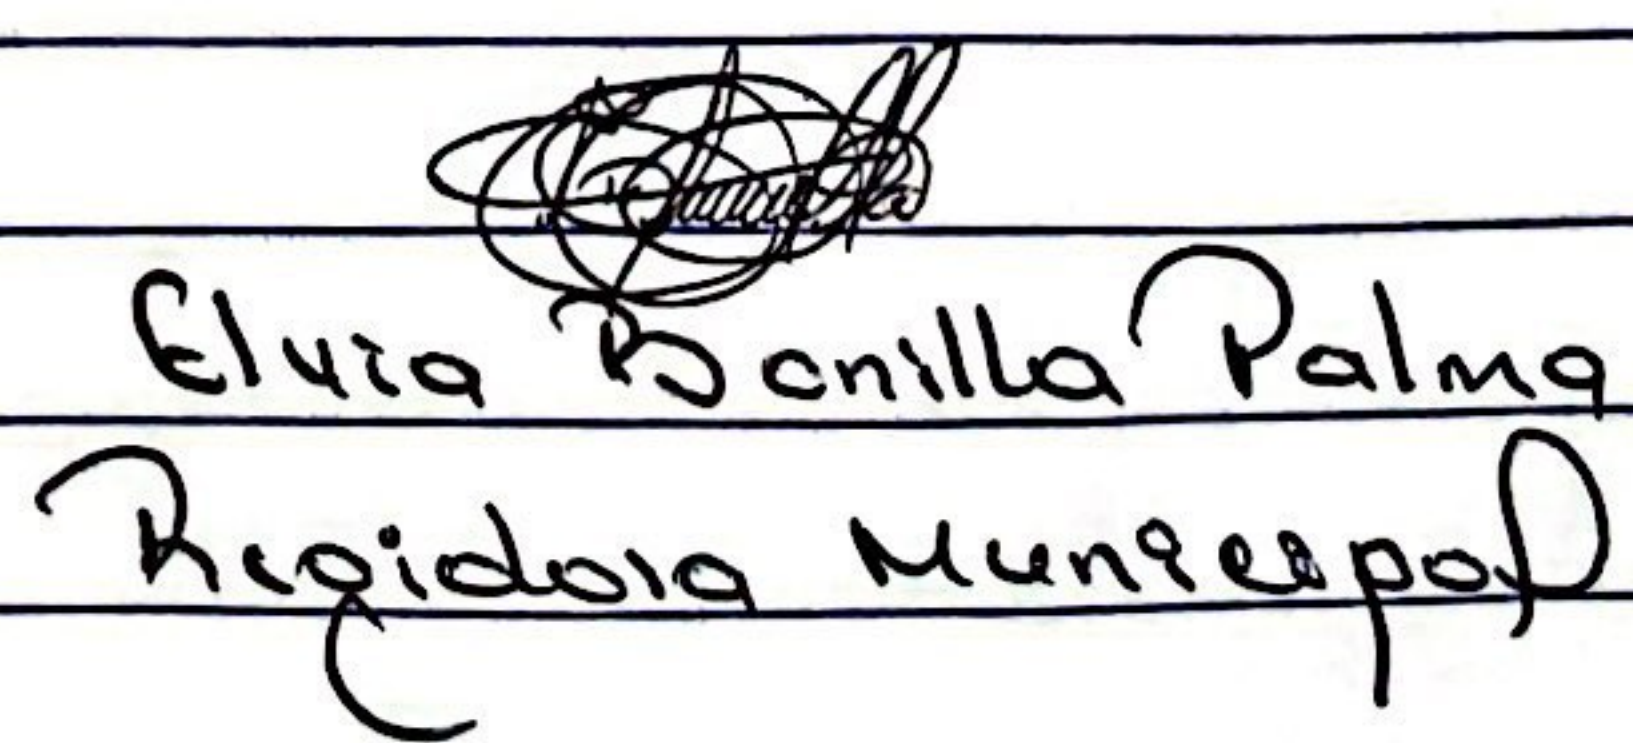 Elvia Bonilla Palma
Regidora Municipal